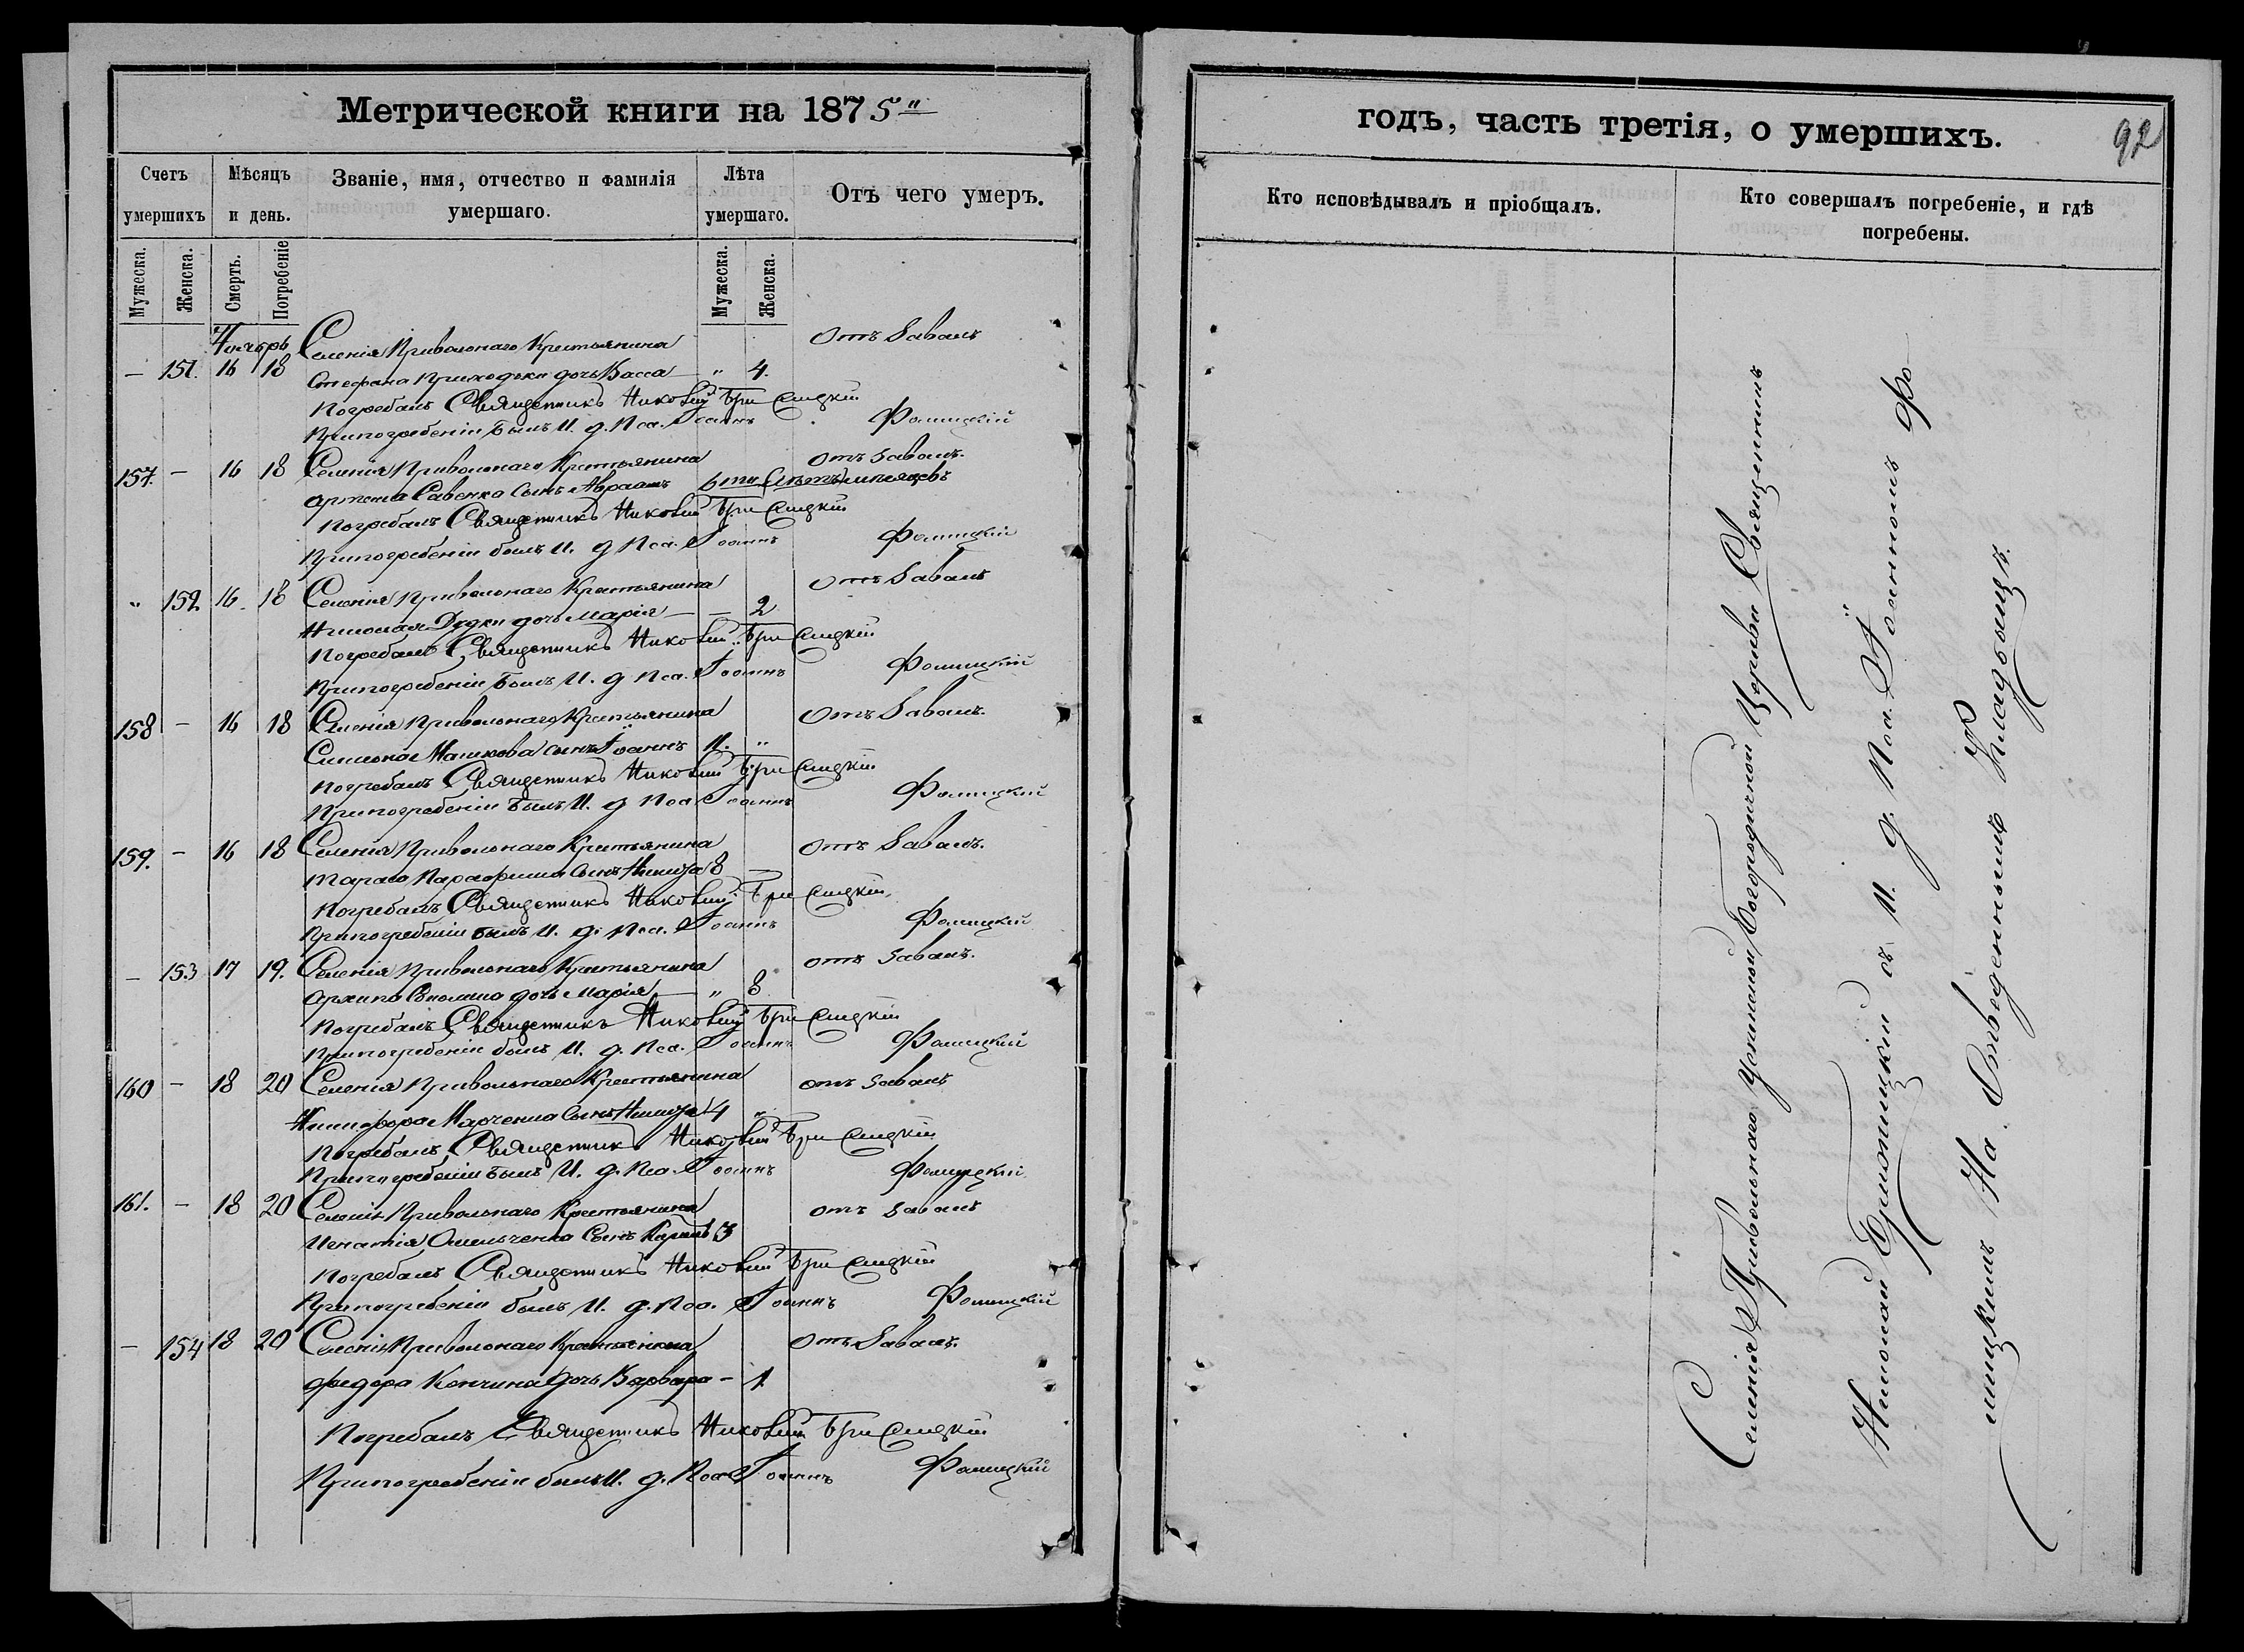 Метрической книги на 1875"
Счетъ умершихъ
Мѣсяцъ и день.
Званіе, имя, отчество и фамилія умершаго.
Лѣта умершаго.
Отъ чего умеръ.
Мужеска. Женска. Смерть. Погребеніе Мужеска. Женска.
Ноябрь Селенія Привольнаго Крестьянина Отъ Забалъ
— 151. 16 18 Стефана Приходьки дочь Васса — " 4.
Погребалъ Священникъ Николай
При погребеніи былъ И. д. Пса. Іоаннъ Фомицкій
157. — 16 18 Селенія Привольнаго Крестьянина отъ забалъ.
Артема Савенка Сынъ Авраамъ 6ти мѣсяцевъ
Погребалъ Священникъ Николай
При погребеніи былъ И. д Пса. Іоаннъ Фомицкій
" 152 16. 18 Селенія Привольнаго Крестьянина отъ Забалъ
Николая Дудки дочь Марія — — 2
Погребалъ Священникъ Николай
При погребеніи былъ И. д Пса. Іоаннъ Фомицкій
158 — 16 18 Селенія Привольнаго Крестьянина Отъ Забалъ.
Симеона Машкова сынъ Іоаннъ 11. "
Погребалъ Священникъ Николай
При погребеніи былъ И. д Пса Іоаннъ Фомицкій
159. — 16 18 Селенія Привольнаго Крестьянина отъ Забалъ.
Тараса сынъ Никита 8 —
Погребалъ Священникъ Николай
При погребеніи былъ И. д. Пса. Іоаннъ Фомицкій
— 153 17 19. Селенія Привольнаго Крестьянина отъ Забалъ.
Архипа дочь Марія — " 8
Погребалъ Священникъ Николай
При погребеніи былъ И. д. Пса. Іоаннъ Фомицкій
160 — 18 20 Селенія Привольнаго Крестьянина отъ забалъ
Никифора Марченка Сынъ Никита 4 "
Погребалъ Священникъ Николай
При погребеніи былъ И. д. Пса. Іоаннъ Фомицкій
161. — 18 20 Селенія Привольнаго Крестьянина отъ забалъ
Игнатія Омельченка Сынъ 3
Погребалъ Священникъ Николай
При погребеніи былъ И. д. Пса. Іоаннъ Фомицкій
— 154 18 20 Селенія Привольнаго Крестьянина Отъ Забалъ.
Федора дочь Варвара — 1
Погребалъ Священникъ Николай
При погребеніи былъ И. д. Пса Іоаннъ Фомицкій
годъ, часть третія, о умершихъ.
92
Кто исповѣдывалъ и пріобщалъ.
Кто совершалъ погребеніе, и гдѣ погребены.
Селенія Привольнаго Успенской Богородичной Церкви Священникъ
Николай съ И. д. Пса. Іоанномъ Фо
мицкимъ На Отведенномъ Кладбищѣ.